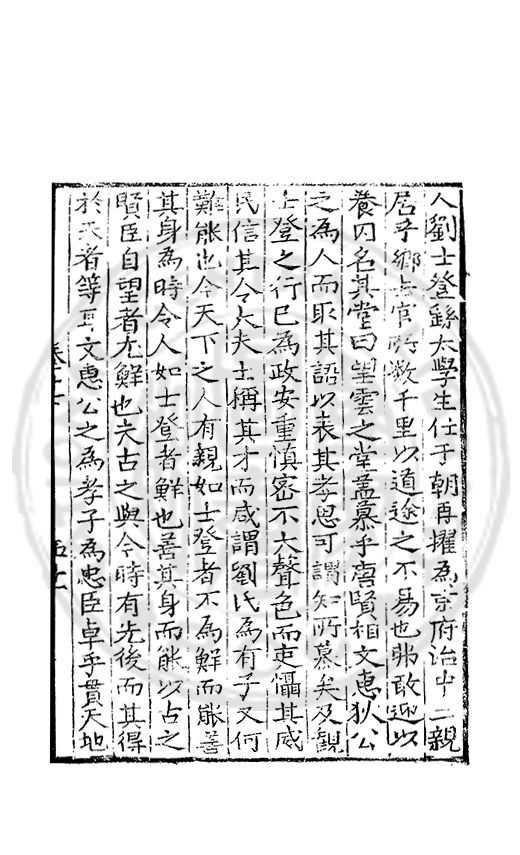 人劉士登繇太學生仕于朝再擢為京府治中二親
居乎鄉去官所數千里以道途之不易也弗敢迎以
養因名其堂曰望雲之堂盖慕乎唐賢相文惠狄公
之為人而取其語以表其孝思可謂知所慕矣及觀
士登之行已為政安重慎密不大聲色而吏懾其威
民信其令大夫士稱其才而咸謂劉氏為有子又何
難能也今天下之人有親如士登者不為鮮而能善
其身為時令人如士登者鮮也善其身而能以古之
賢臣自望者尤鮮也夫古之與今時有先後而其得
於天者等耳文惠公之為孝子為忠臣卓乎貫天地